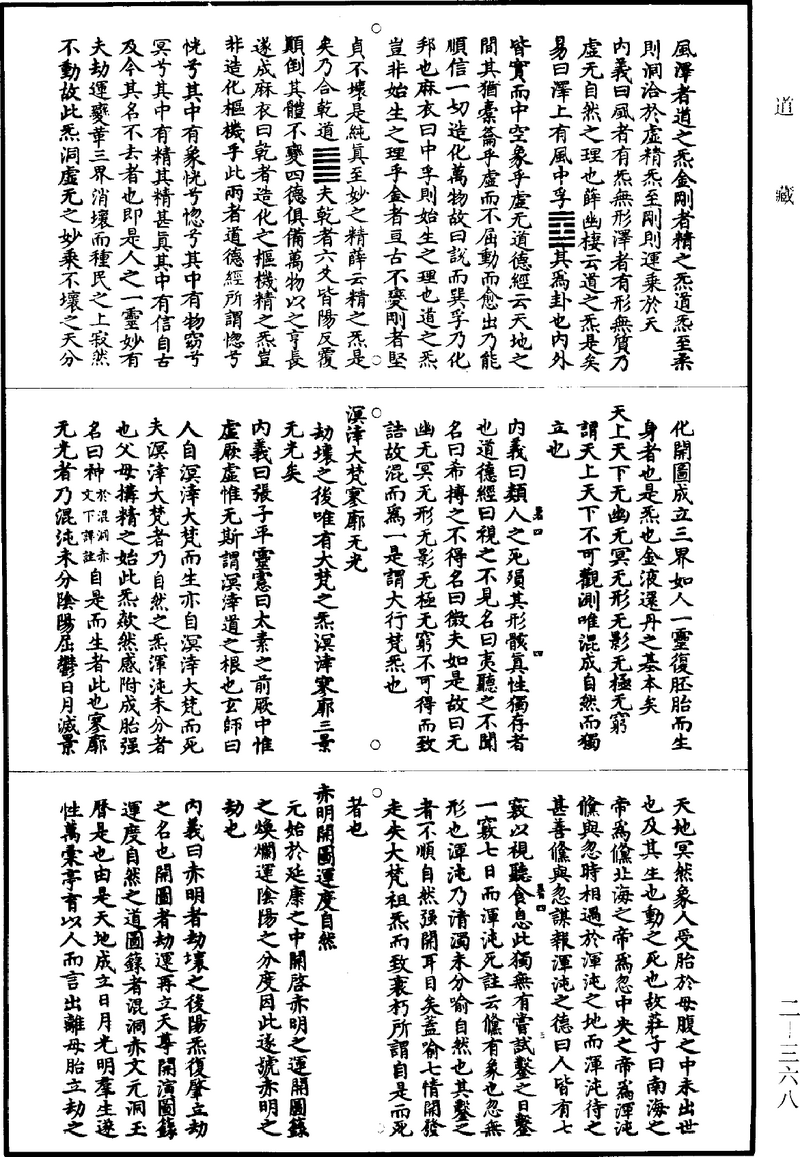 道藏
風澤者道之炁金剛者精之炁道炁至柔
則洞洽於虛精炁至剛則運乘於天
內義曰風者有炁無形澤者有形無質乃
虛无自然之理也薛幽棲云道之炁是矣
易曰澤上有風中孚䷼其為卦也內外
皆實而中空象乎虛无道德經云天地之
間其猶橐籥乎虛而不屈動而愈出乃能
順信一切造化萬物故曰說而巽孚乃化
邦也麻衣曰中孚則始生之理也道之炁
豈非始生之理乎金者亘古不變剛者堅
貞不壞是純真至妙之精薛云精之炁是
矣乃合乾道䷀夫乾者六爻皆陽反覆
顛倒其體不變四德俱備萬物以之亨長
遂成麻衣曰乾者造化之樞機精之炁豈
非造化樞機乎此兩者道德經所謂惚兮
恍兮其中有象恍兮惚兮其中有物窈兮
冥兮其中有精其精甚真其中有信自古
及今其名不去者也即是人之一靈妙有
夫劫運變革三界消壞而種民之上寂然
不動故此炁洞虛无之妙乘不壞之天分
化開圖成立三界如人一靈復胚胎而生
身者也是炁也金液還丹之基本矣
天上天下无幽无冥无形无影无極无窮
謂天上天下不可觀測唯混成自然而獨
立也
內義曰類人之死殞其形骸真性獨存者
也道德經曰視之不見名曰夷聽之不聞
名曰希摶之不得名曰微夫如是故曰无
幽无冥无形无影无極无窮不可得而致
詰故混而為一是謂大行梵炁也
溟涬大梵寥廓无光
劫壞之後唯有大梵之炁溟涬寥廓三景
无光矣
內義曰張子平靈憲曰太素之前厥中惟
虛厥虛惟无斯謂溟涬道之根也玄師曰
人自溟涬大梵而生亦自溟涬大梵而死
夫溟涬大梵者乃自然之炁渾沌未分者
也父母搆精之始此炁歘然感附成胎强
名曰神於混洞赤文下詳註自是而生者此也寥廓
无光者乃混沌未分陰陽屈鬱日月滅景
天地冥然象人受胎於母腹之中未出世
也及其生也動之死也故莊子曰南海之
帝為儵北海之帝為忽中央之帝為渾沌
儵與忽時相遇於渾沌之地而渾沌待之
甚善儵與忽謀報渾沌之德曰人皆有七
竅以視聽食息此獨無有嘗試鑿之日鑿
一竅七日而渾沌死註云儵有象也忽無
形也渾沌乃清濁未分喻自然也其鑿之
者不順自然强開耳目矣蓋喻七情開發
走失大梵祖炁而致衰朽所謂自是而死
者也
赤明開圖運度自然
元始於延康之中開啓赤明之運開圖籙
之煥爛運陰陽之分度因此遂號赤明之
劫也
內義曰赤明者劫壞之後陽炁復肇立劫
之名也開圖者劫運再立天尊開演圖籙
運度自然之道圖籙者混洞赤文元洞玉
曆是也由是天地成立日月光明羣生遂
性萬彙亭育以人而言出離母胎立劫之
二—三六八